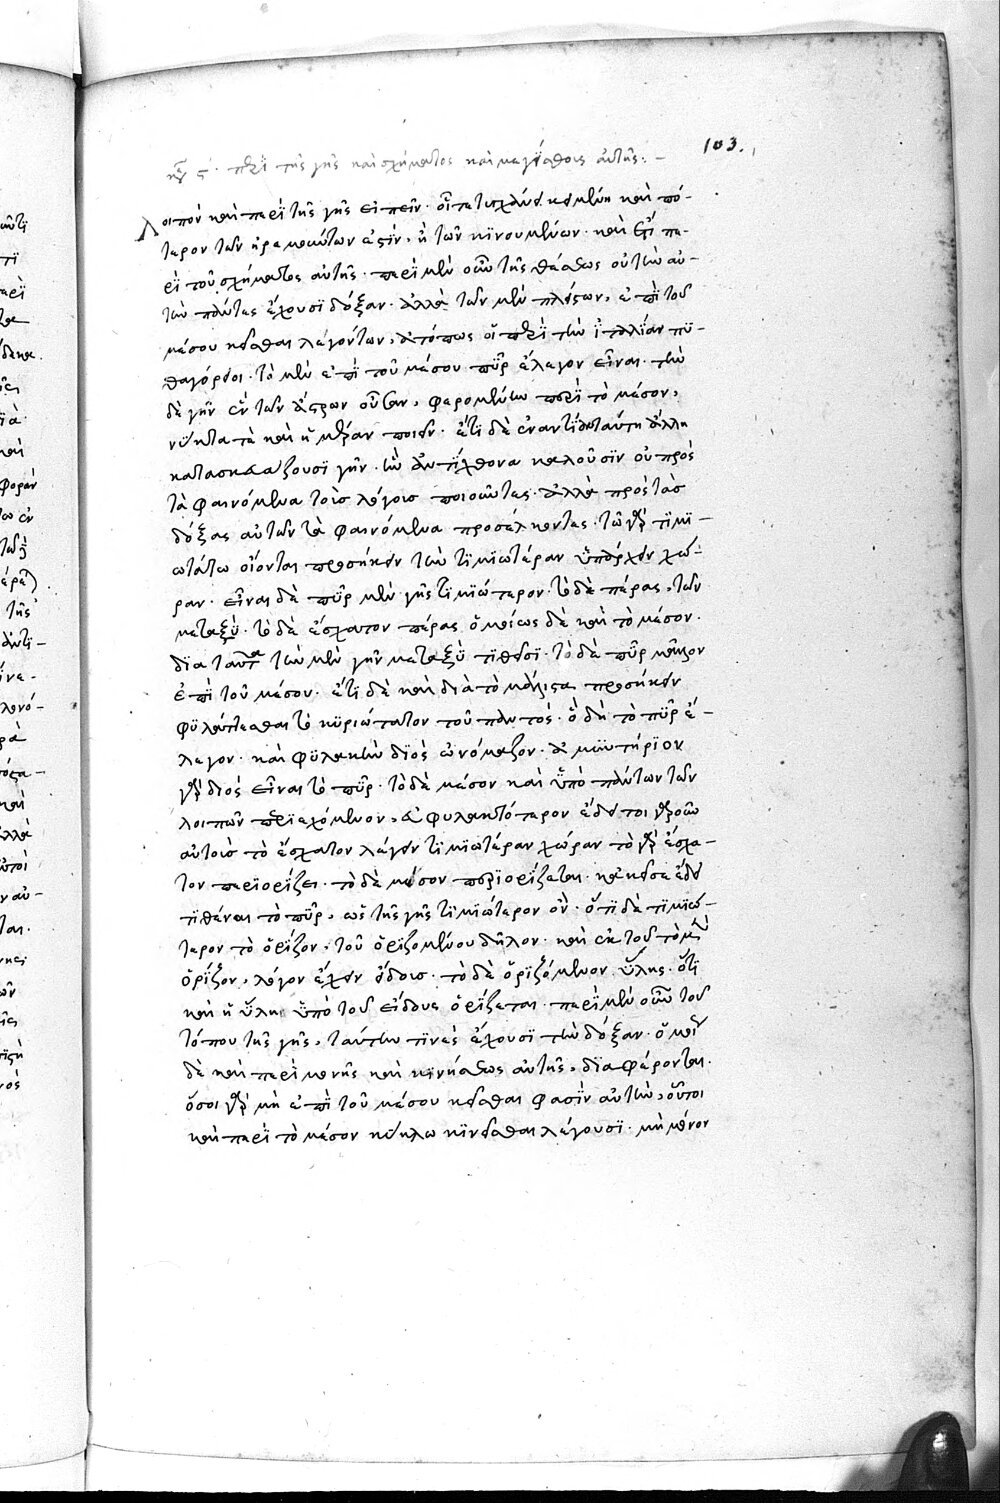 103.
κεφ ϛ· περὶ τῆς γῆς καὶ σχήματος καὶ μεγέθους αὐτῆς:-
Λοιπὸν καὶ περὶ τῆς γῆς εἰπεῖν· οὗ τε τυγχάνει κειμένη καὶ πό-
τερον τῶν ἠρεμούντων ἐστὶν, ἢ τῶν κινουμένων· καὶ ἔτι πε-
ρὶ τοῦ σχήματος αὐτῆς· περὶ μὲν οὖν τῆς θέσεως οὐ τὴν αὐ-
τὴν πάντες ἔχουσι δόξαν· ἀλλὰ τῶν μὲν πλείστων, ἐπὶ τοῦ
μέσου κεῖσθαι λεγόντων, ἀτόπως οἱ περὶ τὴν ἰταλίαν πυ-
θαγόρειοι· τὸ μὲν ἐπὶ τοῦ μέσου πῦρ ἔλεγον εἶναι· τὴν
δὲ γῆν ἓν τῶν ἄστρων οὖσαν, φερομένην περὶ τὸ μέσον,
νύκτα τε καὶ ἡμέραν ποιεῖν· ἔτι δὲ ἐναντίαν ταύτῃ ἄλλην
κατασκευάζουσι γῆν· ἣν ἀντίχθονα καλοῦσιν οὐ πρὸς
τὰ φαινόμενα τοὺς λόγους ποιοῦντες· ἀλλὰ πρός τὰς
δόξας αὐτῶν τὰ φαινόμενα προσέλκοντες· τῶ γὰρ τιμι-
ωτάτω οἴονται προσήκειν τὴν τιμιωτέραν ὑπάρχειν χώ-
ραν· εἶναι δὲ πῦρ μὲν γῆς τιμιώτερον· τὸ δὲ πέρας, τῶν
μεταξὺ· τὸ δὲ ἔσχατον πέρας ὁμοίως δὲ καὶ τὸ μέσον·
διὰ ταῦτα τὴν μὲν γῆν μεταξὺ τιθεῖσι· τὸ δὲ πῦρ κεῖσθαι
ἐπὶ τοῦ μέσου· ἔτι δὲ καὶ διὰ τὸ μάλιστα προσήκειν
φυλάττεσθαι τὸ κυριώτατον τοῦ παντός· ὃ δὴ τὸ πῦρ ἔ-
λεγον· καὶ φυλακὴν διὸς ὠνόμαζον· ἀμυντήριον
γὰρ διὸς εἶναι τὸ πῦρ· τὸ δὲ μέσον καὶ ὑπὸ πάντων τῶν
λοιπῶν περιεχόμενον, ἀφυλακτότερον ἔδει τοι γαροῦν
αὐτοὺς τὸ ἔσχατον λέγειν τιμιωτέραν χώραν τὸ γὰρ ἔσχα-
τον περιορίζει· τὸ δὲ μέσον περιορίζεται· κἀκεῖσε ἔδει
τιθέναι τὸ πῦρ, ὡς τῆς γῆς τιμιώτερον ὂν· ὅτι δὲ τιμιώ-
τερον τὸ ὁρίζον, τοῦ ὁριζομένου δῆλον· καὶ ἐκ τοῦ τὸ μὲν
ὁρίζον, λόγον ἔχειν εἴδους· τὸ δὲ ὁριζόμενον ὕλης· ὅτι
καὶ ἡ ὕλη ὑπὸ τοῦ εἴδους ὁρίζεται· περὶ μὲν οὖν τοῦ
τόπου τῆς γῆς, ταύτην τινὲς ἔχουσι τὴν δόξαν· ὁμοίως
δὲ καὶ περὶ μονῆς καὶ κινήσεως αὐτῆς, διαφέρονται.
ὅσοι γὰρ μὴ ἐπὶ τοῦ μέσου κεῖσθαι φασὶν αὐτὴν, οὗτοι
καὶ περὶ τὸ μέσον κύκλω κινεῖσθαι λέγουσι· μὴ μόνον